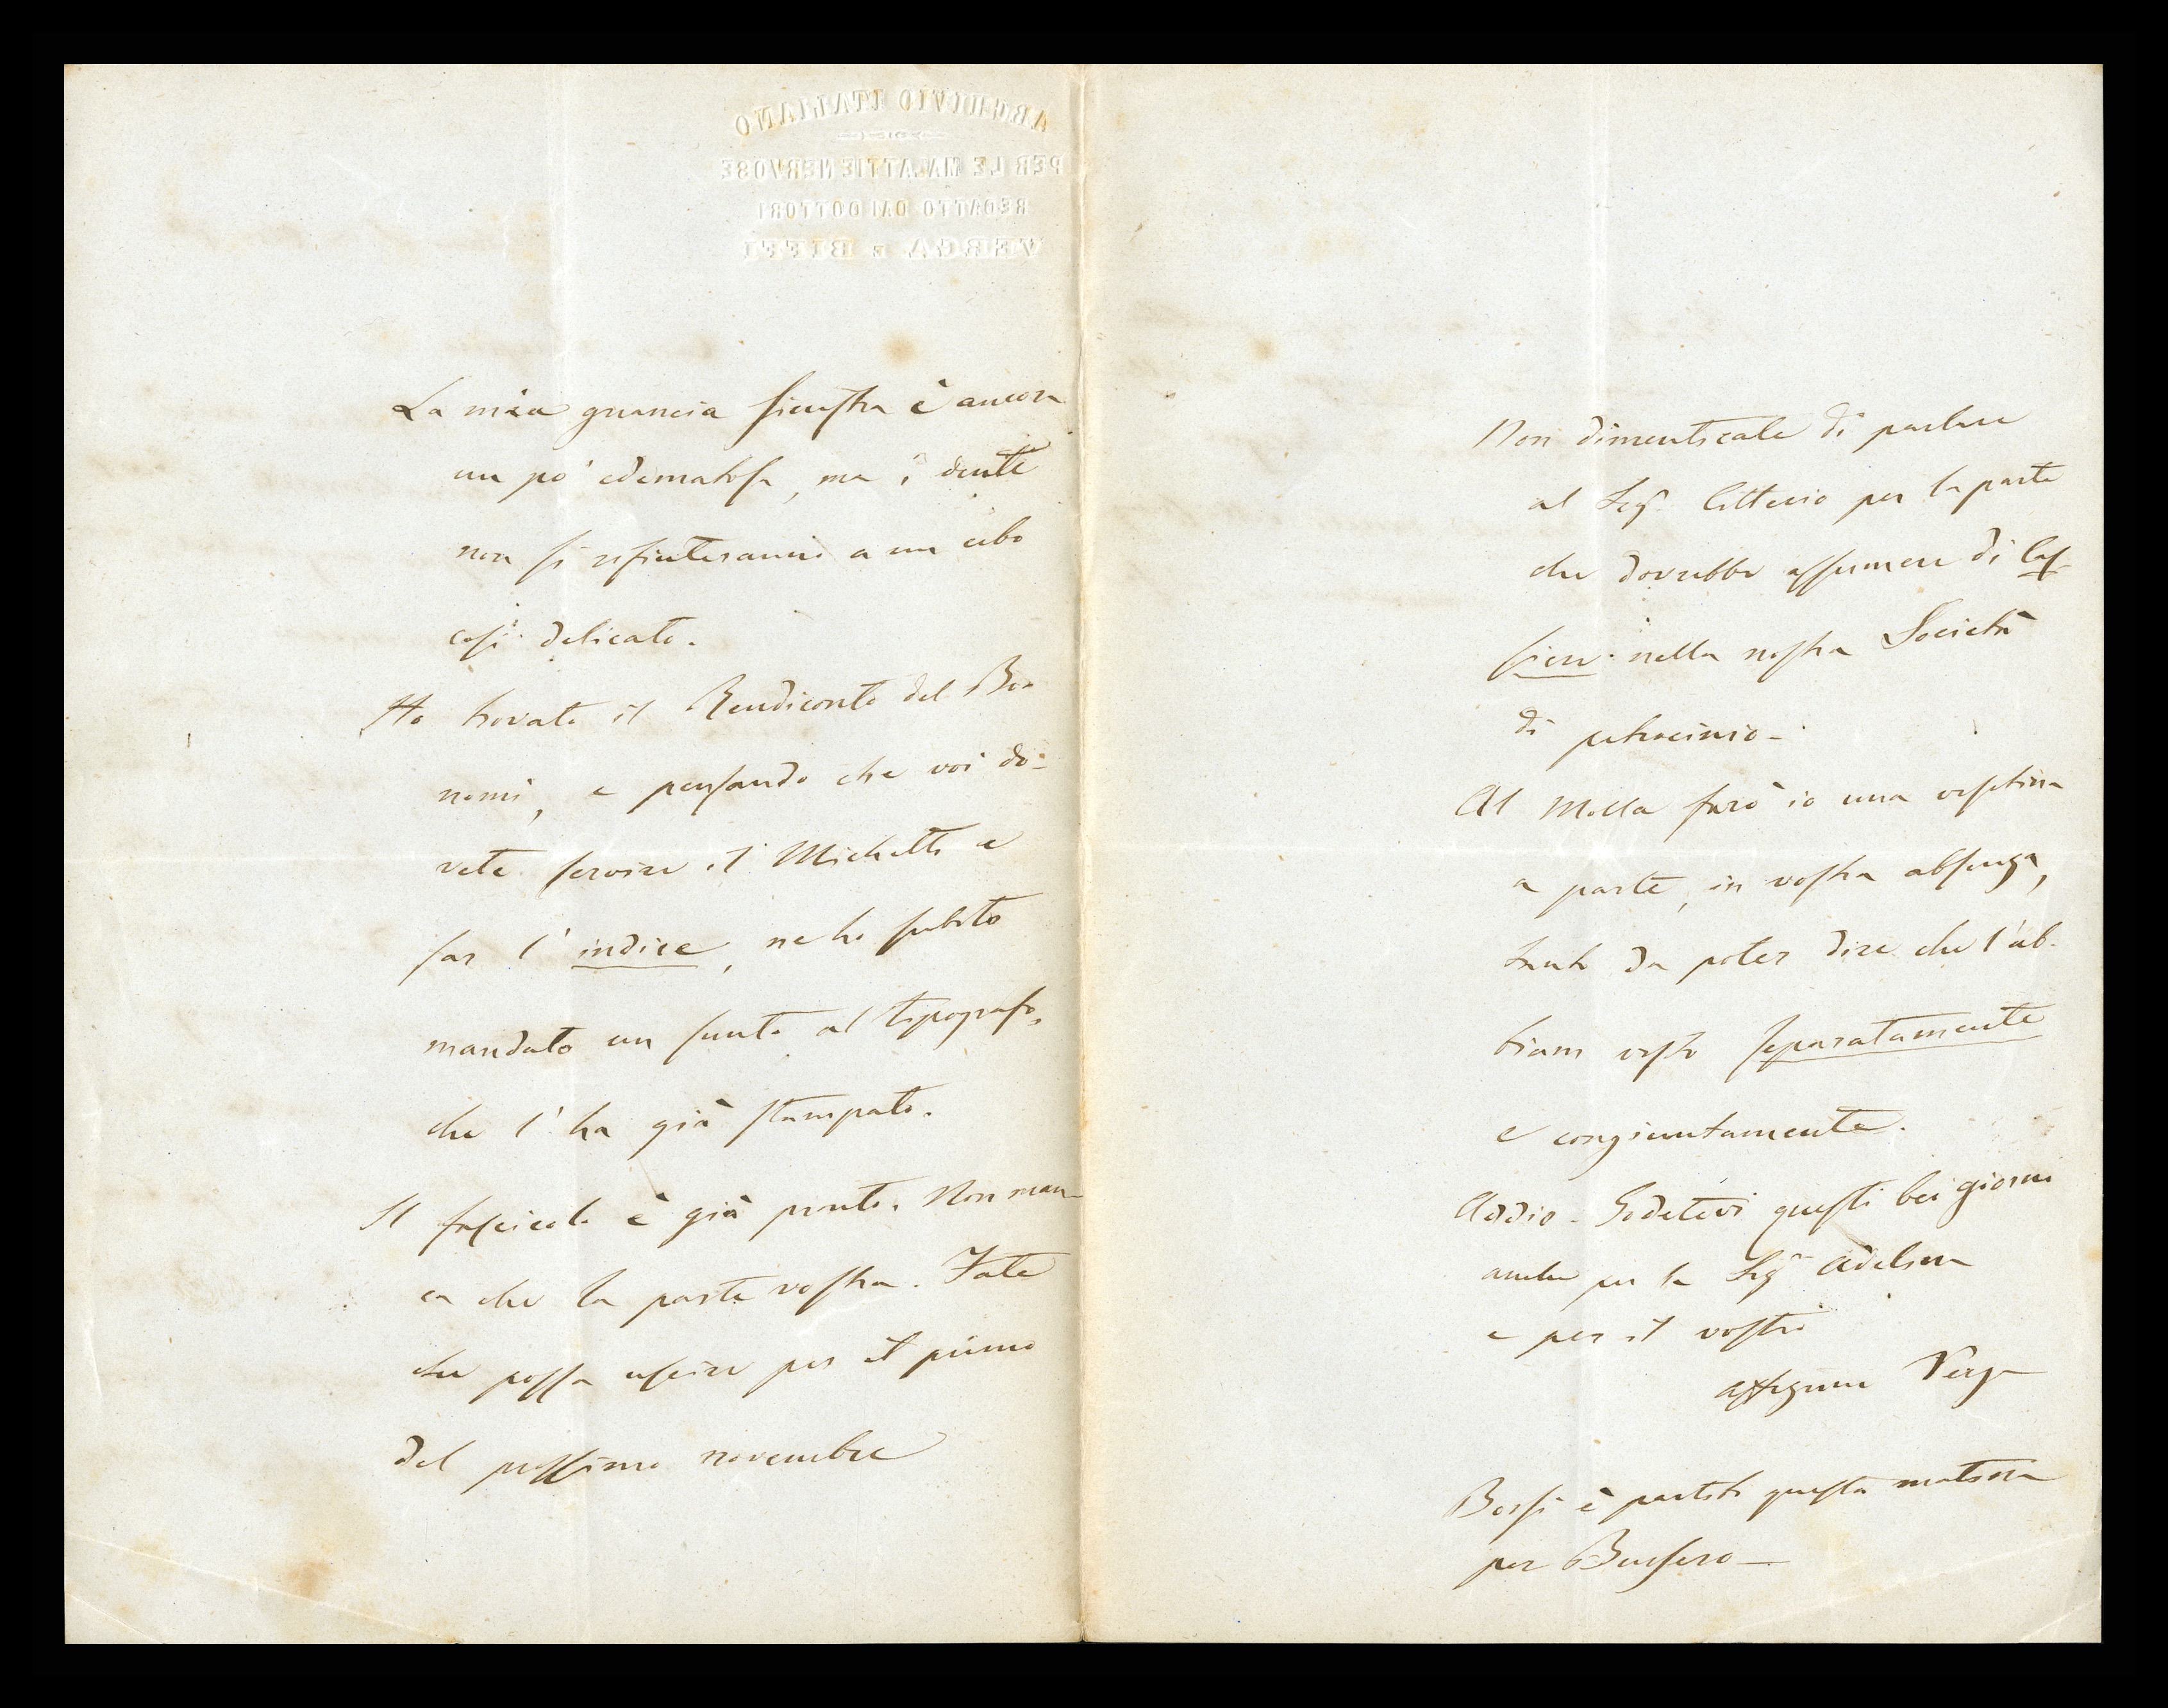 ARCHIVIO ITALIANO
PER LE MALATTIE NERVOSE
REDATTO DAI DOTTORI
VERGA E BIFFI
La mia guancia sinistra è ancora
un po' edematosa, ma i denti
non si rifiuteranno a un cibo
così delicato.
Ho trovato il Rendiconto del Bo-
nomi, e pensando che voi do-
vete servire il Michetti e
far l'indice, ne ho subito
mandato un sunto al tipografo,
che l'ha già stampato.
Il fascicolo è già pronto. Non man-
ca che la parte vostra. Fate
che possa uscire per il primo
del prossimo novembre
Non dimenticate di parlare
al Sigr. Citterio per la parte
che dovrebbe assumere di Cas-
siere nella nostra Società
di patrocinio -
Al Molla farò io una visitina
a parte, in vostra assenza,
tanto da poter dire che l'ab-
biam visto separatamente
e congiuntamente.
Addio - Godetevi questi bei giorni
anche per la Sigra
e per il vostro
Verga
è partito questa mattina
per Bussero -